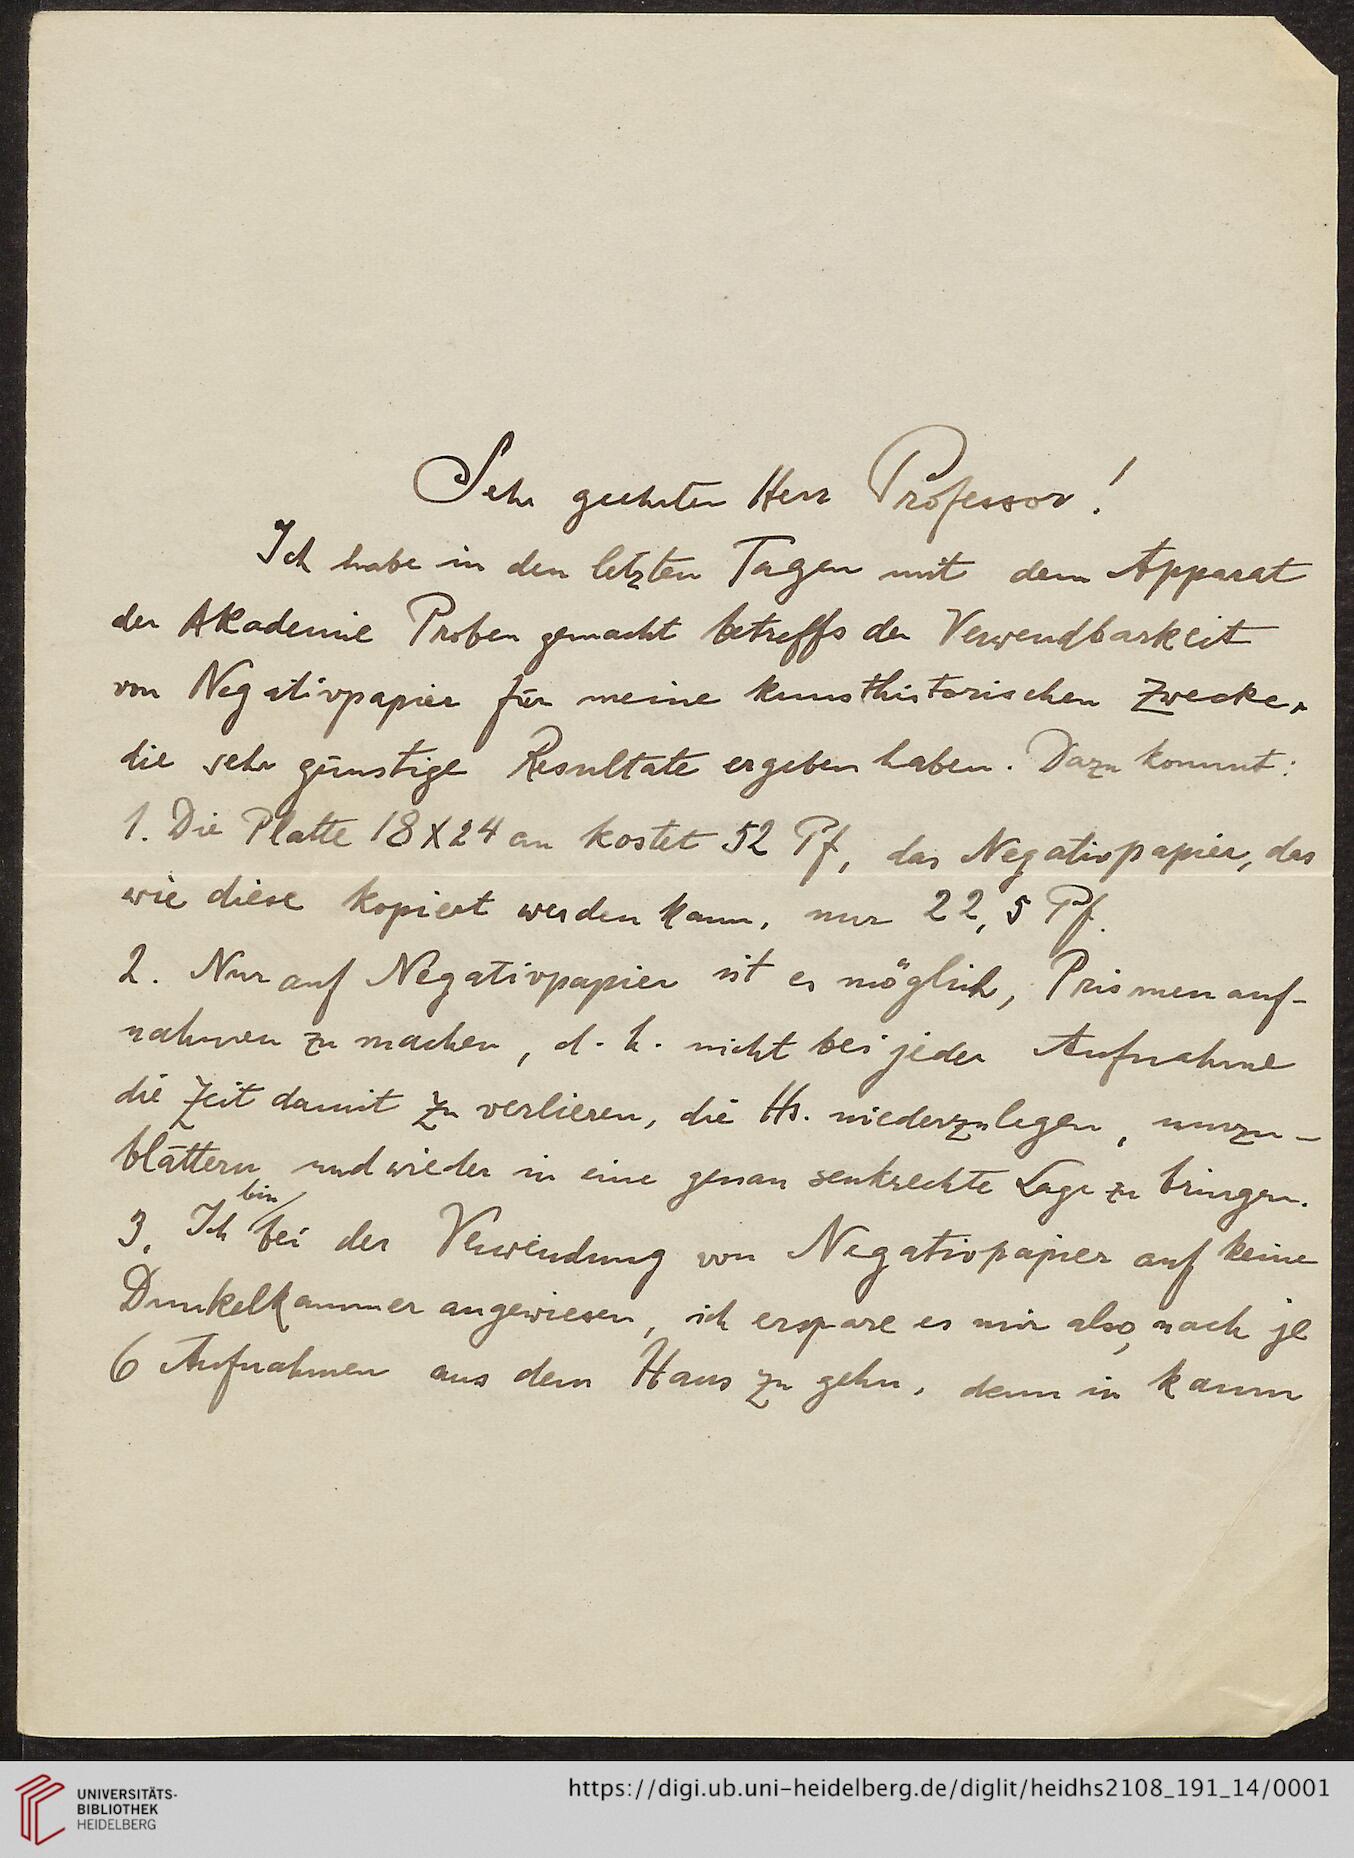 Sehr geehrter Herr Professor!
Ich habe in den letzten Tagen mit dem Apparat
der Akademie Proben gemacht betreffs der Verwendbarkeit
von Negativpapier für meine kunsthistorischen Zwecke,
die sehr günstige Resultate ergeben haben. Dazu kommt:
1. Die Platte 18X24 cm kostet 52 Pf, das Negativpapier, das
wie diese kopiert werden kann, nur 22,5 Pf.
2. Nur auf Negativpapier ist es möglich, Prismenauf-
nahmen zu machen, d. h. nicht bei jeder Aufnahme
die Zeit damit zu verlieren, die Hs. niederzulegen, umzu-
blättern und wieder in eine genau senkrechte Lage zu bringen.
3. Ich bin bei der Verwendung von Negativpapier auf keine
Dunkelkammer angewiesen, ich erspare es mir also, nach je
6 Aufnahmen aus dem Haus zu gehn, denn in kaum
UNIVERSITÄTS-
BIBLIOTHEK
HEIDELBERG
https://digi.ub.uni-heidelberg.de/diglit/heidhs2108_191_14/0001